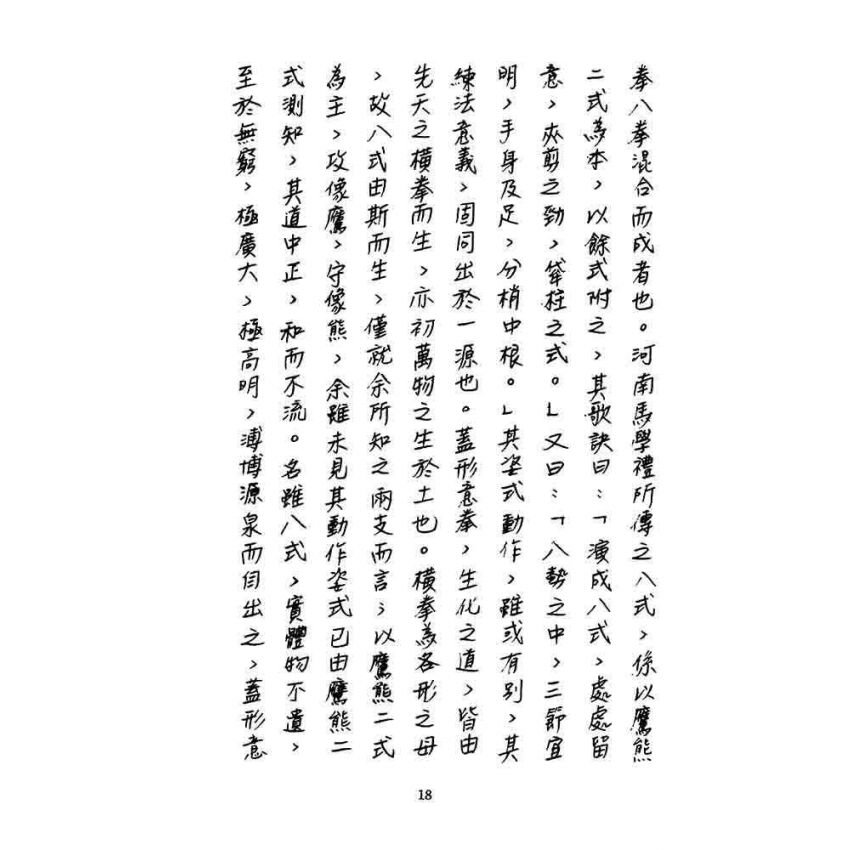 拳八拳混合而成者也。河南馬學禮所傳之八式，係以鷹熊
二式為本，以餘式附之，其歌訣曰：「演成八式，處處留
意，夾剪之勁，拳柱之式。」又曰：「八勢之中，三節宜
明，手身及足，分梢中根。」其姿式動作，雖或有別，其
練法意義，固同出於一源也。蓋形意拳，生化之道，皆由
先天之橫拳而生，亦初萬物之生於土也。橫拳為各形之母
，故八式由斯而生，僅就余所知之兩支而言；以鷹熊二式
為主，攻像鷹，守像熊，余雖未見其動作姿式已由鷹熊二
式測知，其道中正，和而不流。名雖八式，實體物不遺，
至於無窮，極廣大，極高明，溥博源泉而自出之，蓋形意
18